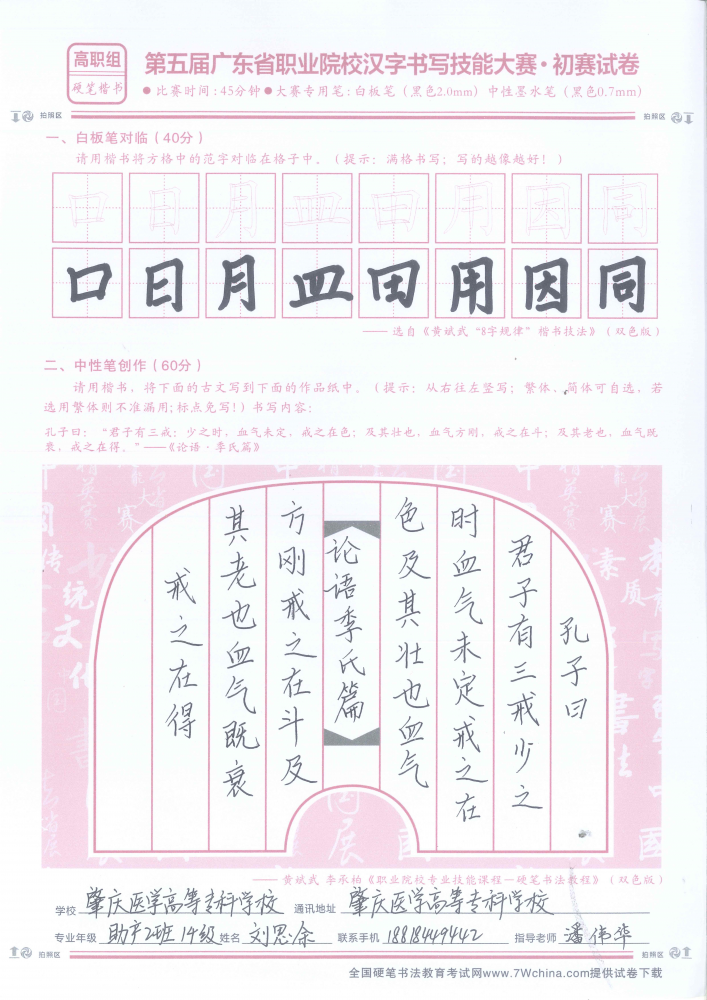 高职组
硬笔楷书
第五届广东省职业院校汉字书写技能大赛·初赛试卷
●比赛时间:45分钟●大赛专用笔:白板笔(黑色2.0mm) 中性墨水笔(黑色0.7mm)
拍照区
拍照区
一、白板笔对临(40分)
请用楷书将方格中的范字对临在格子中。(提示:满格书写;写的越像越好!)
口日月皿田用因同
口日月皿田用因同
——选自《黄斌武“8字规律”楷书技法》(双色版)
二、中性笔创作(60分)
请用楷书,将下面的古文写到下面的作品纸中。(提示:从右往左竖写;繁体、简体可自选,若
选用繁体则不准漏用;标点免写!)书写内容:
孔子曰:“君子有三戒:少之时,血气未定,戒之在色;及其壮也,血气方刚,戒之在斗;及其老也,血气既
衰,戒之在得。”——《论语·季氏篇》
孔子曰
君子有三戒少之
时血气未定戒之在
色及其壮也血气
论语季氏篇
方刚戒之在斗及
其老也血气既衰
戒之在得
——黄斌武 李承柏《职业院校专业技能课程—硬笔书法教程》(双色版)
学校 肇庆医学高等专科学校 通讯地址 肇庆医学高等专科学校
专业年级 助产2班14级 姓名 刘思余 联系手机 18818449442 指导老师 潘伟华
拍照区
拍照区
全国硬笔书法教育考试网www.7Wchina.com提供试卷下载